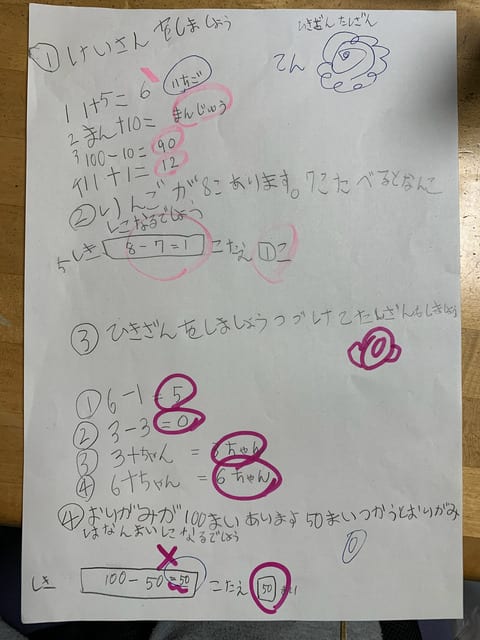 ひきざん たしざん
① けいさんをしましょう
てん
1 1+5= 6 いちご
2 まん+10= まんじゅう
3 100-10= 90
4 11+1= 12
② りんごが8こあります。7こたべるとなんこ
になるでしょう
しき 8-7=1 こたえ 1こ
③ ひきざんをしましょうつづけてたしざんもしましょう
① 6-1=5
② 3-3=0
③ 3+ちゃん = 3ちゃん
④ 6+ちゃん = 6ちゃん
④ おりがみが100まいあります50まいつかうとおりがみ
はなんまいになるでしょう
しき 100-50=50 こたえ 50まい